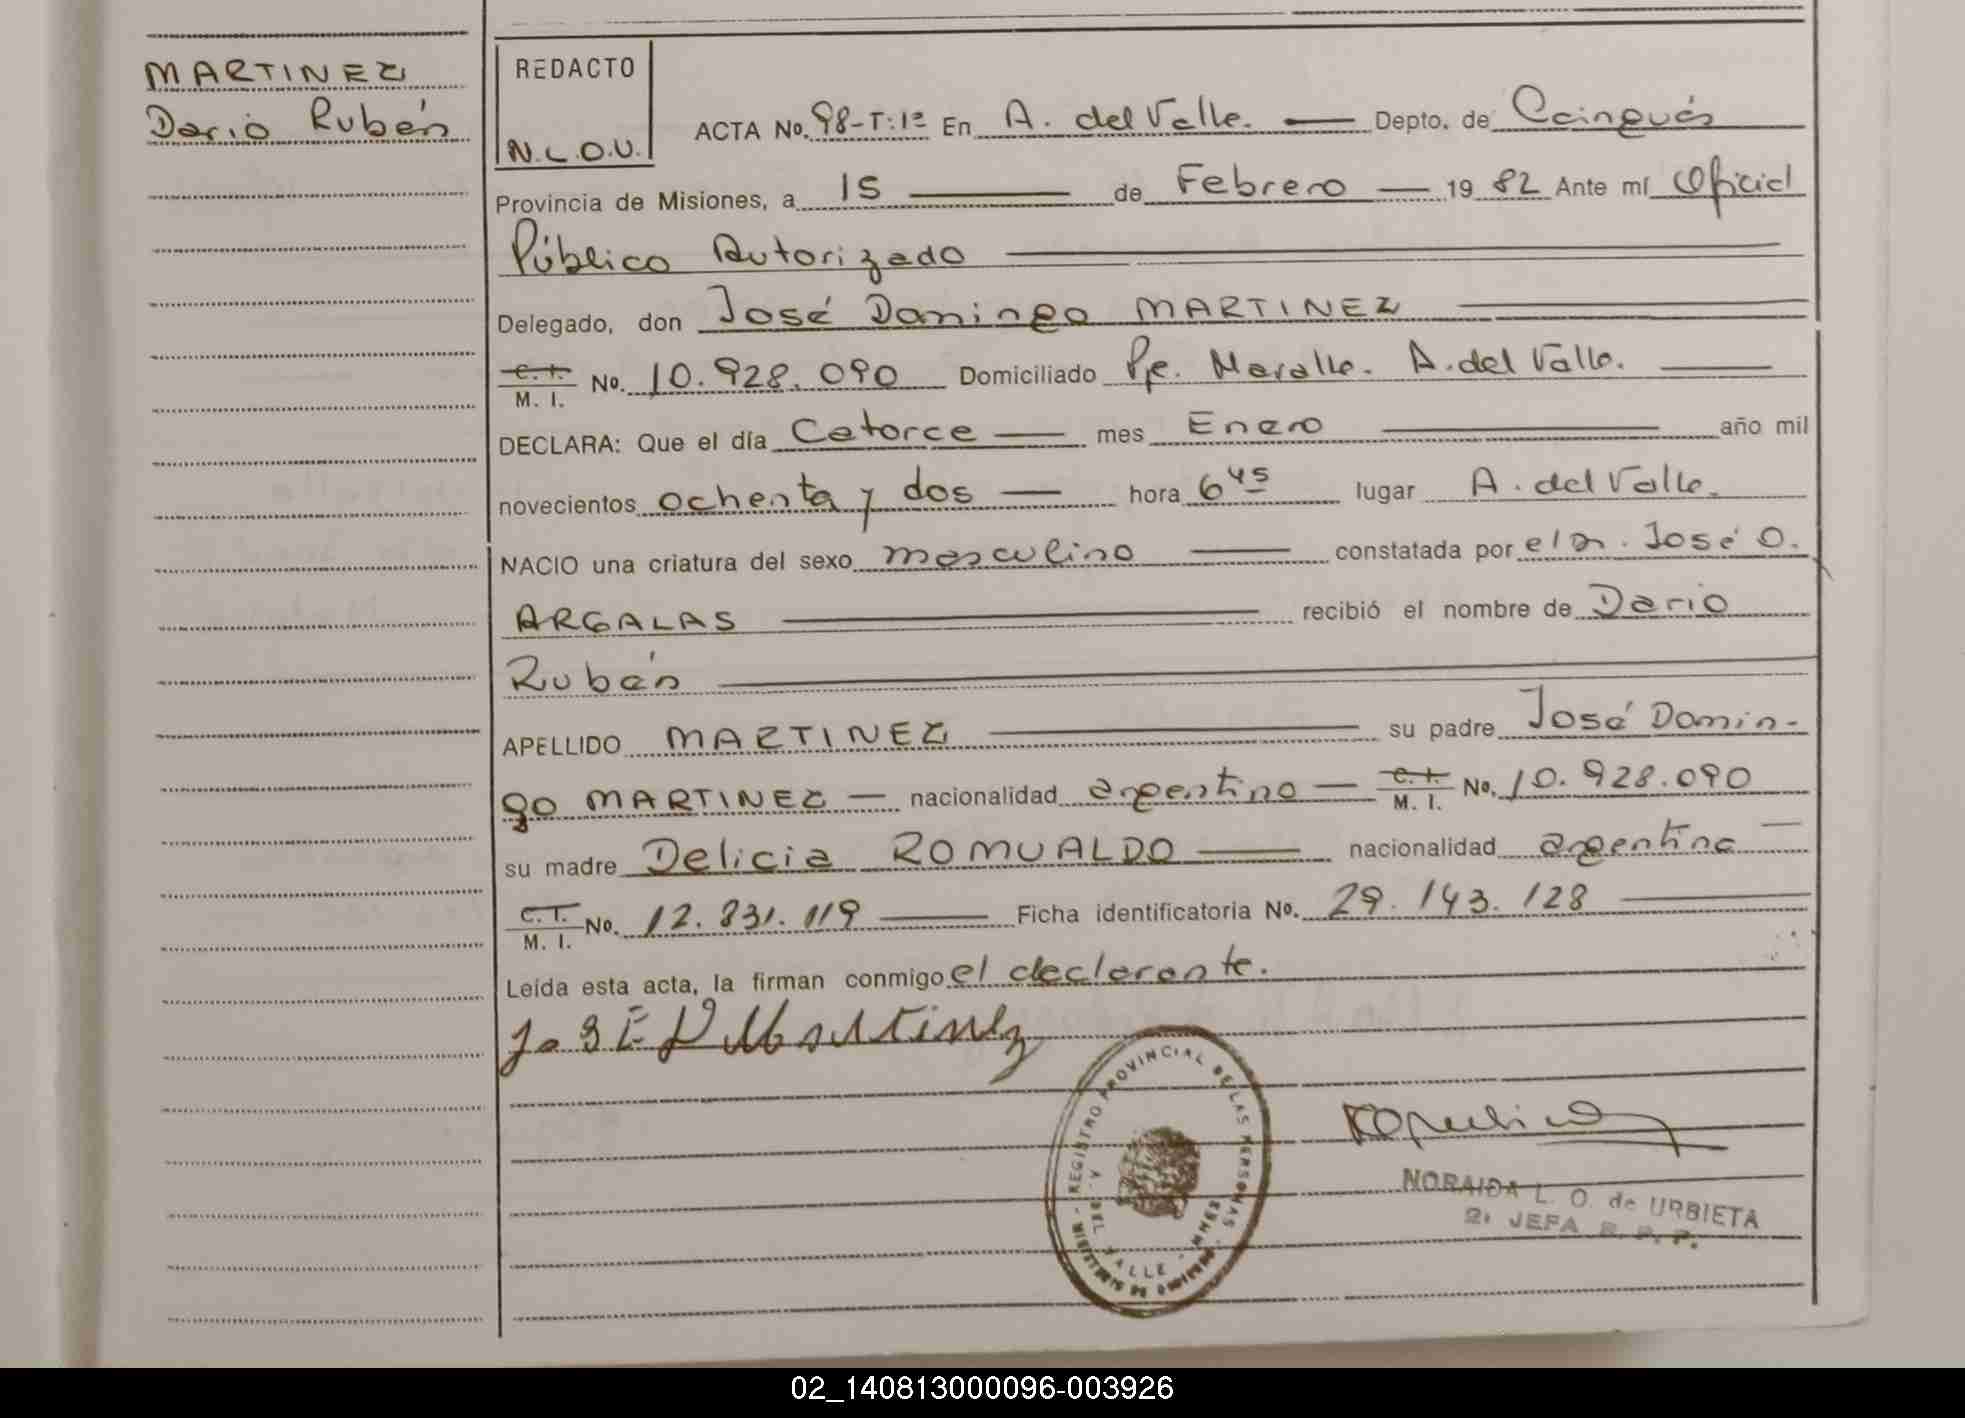 MARTINEZ
Dario Rubén
REDACTO
N.L.O.U.
ACTA No. 98-T:1º En A. del Valle. Depto. de Cainguás
Provincia de Misiones, a 15 de Febrero 19 82 Ante mí Oficial
Público Autorizado
Delegado, don José Domingo MARTINEZ
C.I. M. I. No. 10.928.090 Domiciliado Pje. Maralle. A. del Valle.
DECLARA: Que el día Catorce mes Enero año mil
novecientos ochenta y dos hora 6 45 lugar A. del Valle.
NACIO una criatura del sexo masculino constatada por el Dr. José O.
ARGALAS recibió el nombre de Dario
Rubén
APELLIDO MARTINEZ su padre José Domin-
go MARTINEZ nacionalidad argentino C.I. M. I. No. 10.928.090
su madre Delicia ROMUALDO nacionalidad argentina
C.I. M. I. No. 12.831.119 Ficha identificatoria No. 29.143.128
Leída esta acta, la firman conmigo el declarante.
José D Martinez
REGISTRO PROVINCIAL DE LAS PERSONAS
DEL VALLE
NORAIDA L. O. de URBIETA
2ª JEFA R. P. P.
02_140813000096-003926